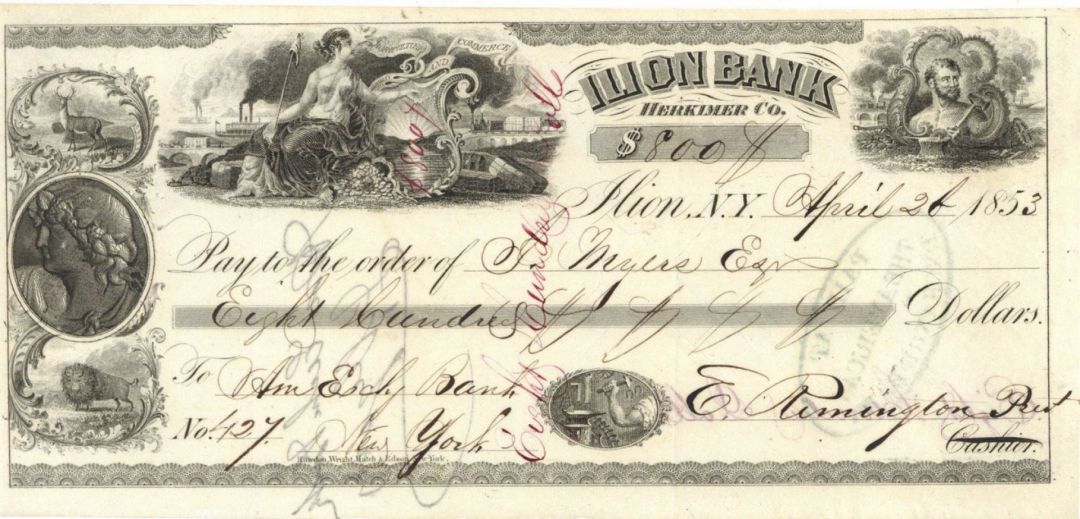 AGRICULTURE AND COMMERCE
ILION BANK
HERKIMER CO.
$ 800
$800
Ilion, N.Y. April 26 1853
Pay to the order of J. Myers Esqr
Eight Hundred Dollars.
Eight Hundred Doll
To Am Exch Bank
No. 427. New York
E. Remington Prest
Cashier.
Rawdon, Wright, Hatch & Edson, New-York.